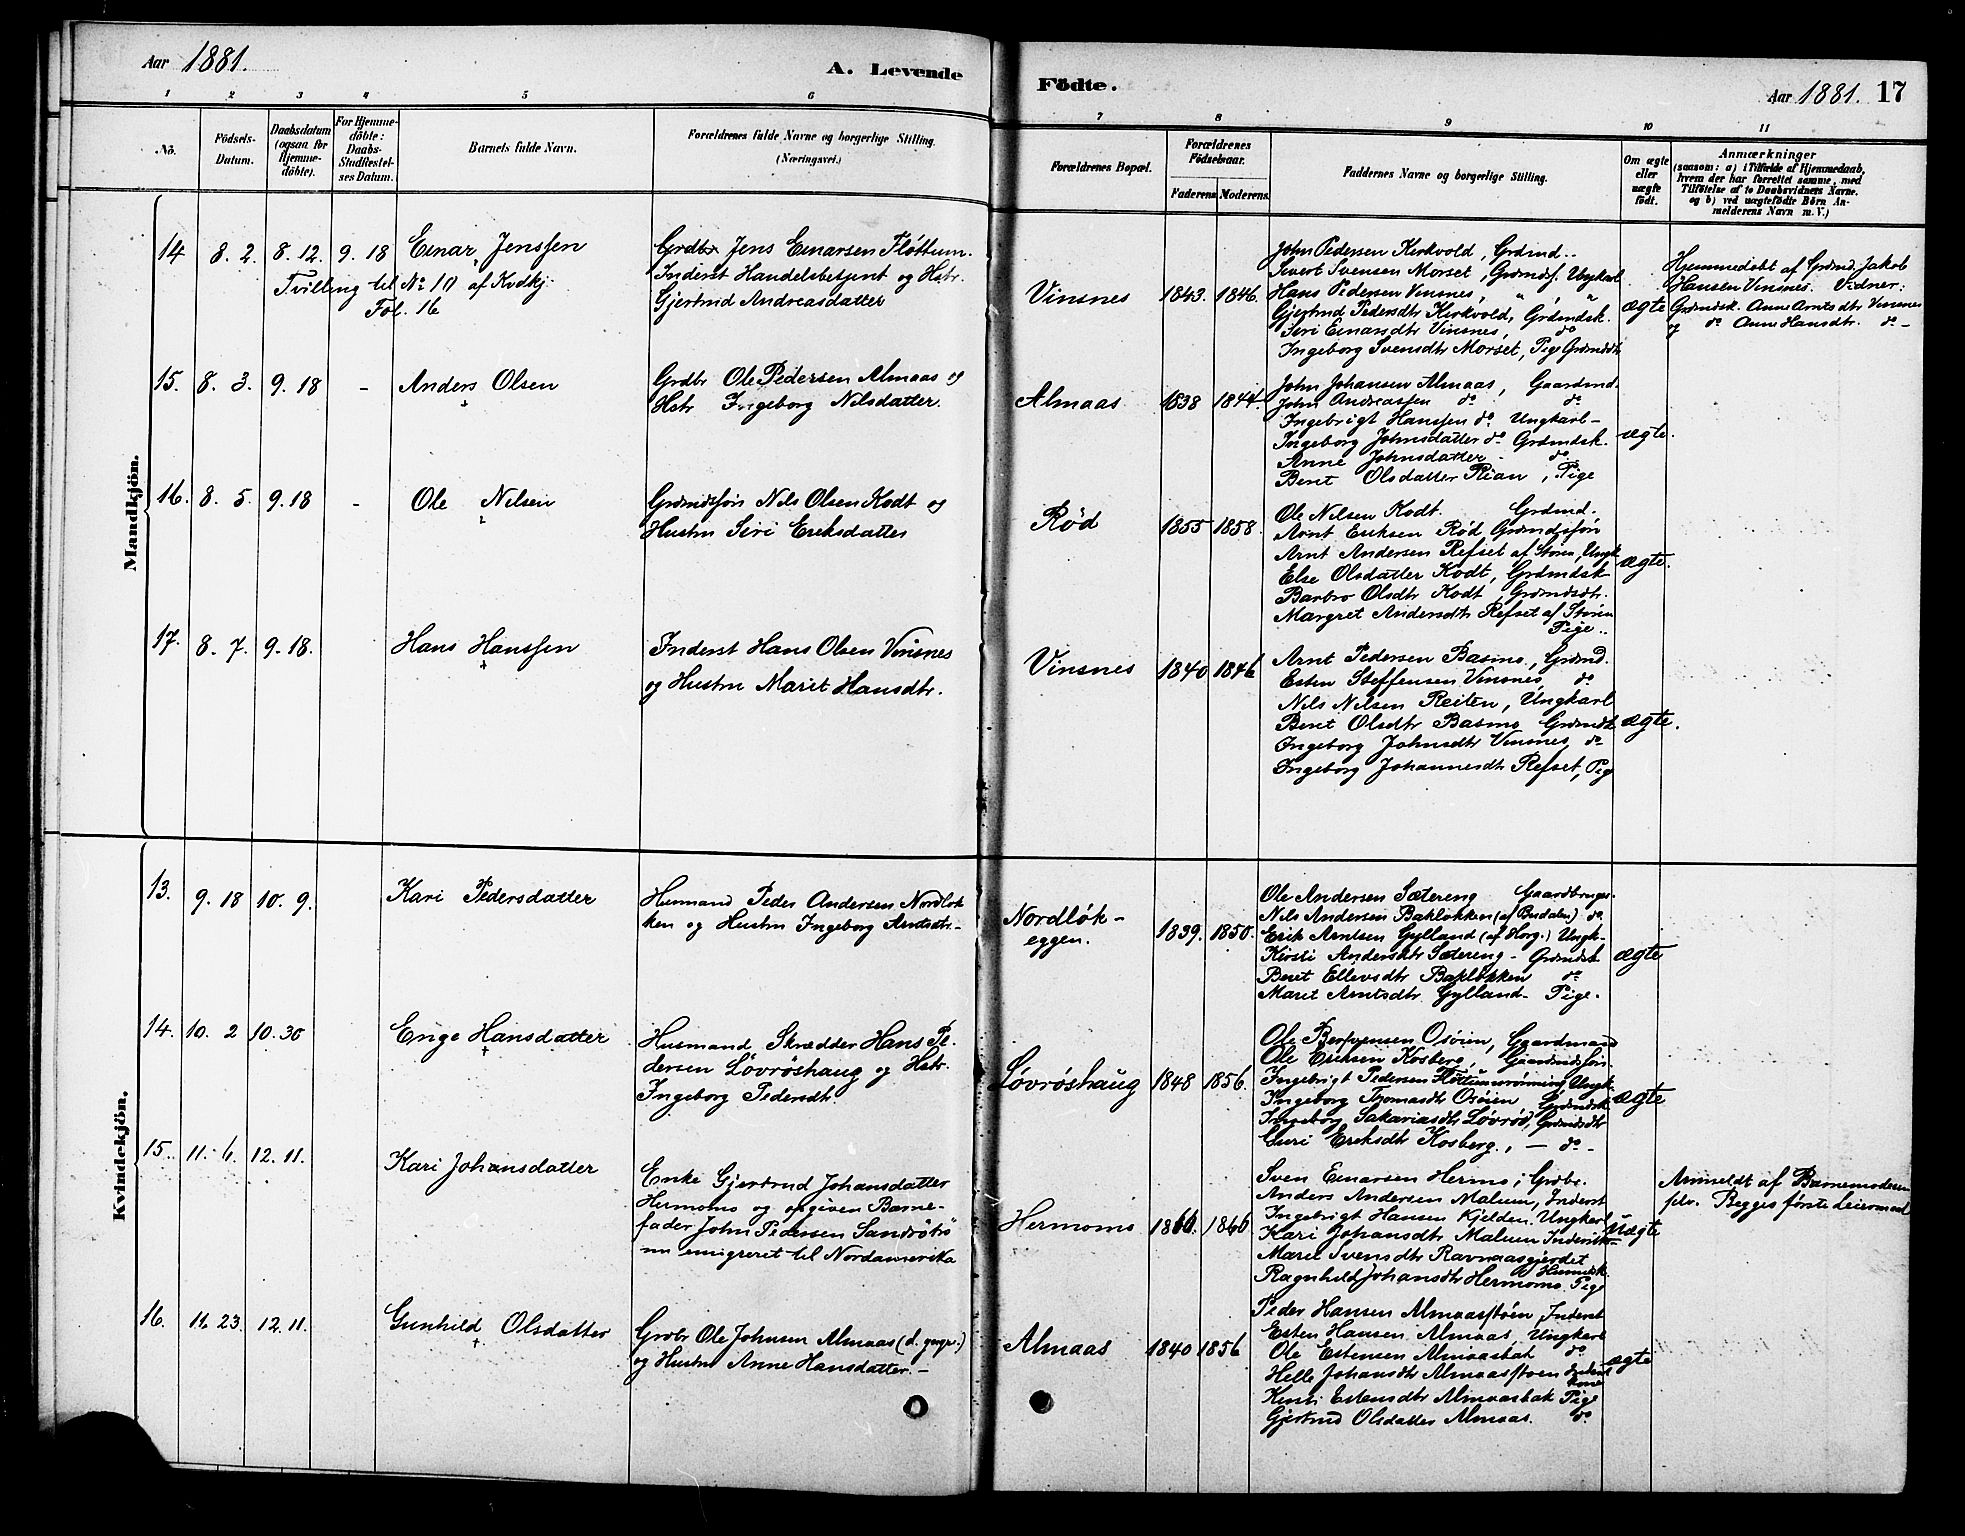 Aar 1881.
A. Levende
Födte.
Aar 1881. 17
1 2 3 4 5 6 7 8 9 10 11
No.
Födsels-
Datum.
Daabsdatum
(ogsaa for
Hjemme-
döbte).
For Hjemme-
döbte:
Daabs-
Stadfæstel-
ses Datum.
Barnets fulde Navn.
Forældrenes fulde Navne og borgerlige Stilling.
(Næringsvei.)
Forældrenes Bopæl.
Forældrenes
Födselsaar.
Faderens. Moderens.
Faddernes Navne og borgerlige Stilling.
Om ægte
eller
uægte
født.
Anmærkninger
(saasom: a) i Tilfælde af Hjemmedaab,
hvem der har forrettet samme, med
Tilföielse af to Daabsvidners Navne.
og b) ved uægtefödte Börn An-
melderens Navn m. V.)
Mandkjön.
14 8. 2. 8. 12. 9. 18 Einar Jenssen
Tvilling til No 10 af Kvdkj.
Fol. 16
Grdbr Jens Einarsen Fløttum.
Inderst Handelsbetjent og Hstr.
Gjertrud Andreasdatter
Vinsnes 1843. 1846.
John Pedersen Kirkvold, Grdmd..
Sivert Svensen Morset, Grdmdsf. Ungkarl
Hans Pedersen Vinsnes, " , "
Gjertrud Pedersdtr Kirkvold, Grdmdsk.
Siri Einarsdtr Vinsnes, do
Ingeborg Svensdtr Morset, Pige Grdmdsdtr
ægte
Hjemmedøbt af Grdmd. Jakob
Hansen Vinsnes. Vidner:
Grdmdsk. Anne Arntsdtr Vinsnes
og do Anne Hansdtr. do -
15. 8. 3. 9. 18 - Anders Olsen
Grdbr Ole Pedersen Almaas og
Hstr Ingeborg Nilsdatter.
Almaas 1838 1844.
John Johansen Almaas, Gaardmd.
John Andreassen do do
Ingebrigt Hanssen do Ungkarl -
Ingeborg Johnsdatter do Grdmdsk.
Anne Johnsdatter - do
Beret Olsdatter Rian, Pige
ægte.
16. 8. 5. 9. 18 - Ole Nilsen
Grdmdsføn Nils Olsen Kodt og
Hustru Siri Eriksdatter
Rød 1855 1858.
Ole Nilsen Kodt. Grdmd.
Arnt Eriksen Rød Grdmdsføn
Arnt Andersen Refset af Støren, Ungk
Else Olsdatter Kodt, Grdmdsk
Barbro Olsdtr Kodt, Grdmdsdtr.
Margret Andersdtr Refset af Støren
Pige..
ægte.
17. 8. 7. 9. 18. Hans Hanssen
Inderst Hans Olsen Vinsnes
og Hustru Marit Hansdtr.
Vinsnes 1840 1846
Arnt Pedersen Basmo, Grdmd.
Esten Steffensen Vinsnes do
Nils Nilsen Reiten, Ungkarl
Beret Olsdtr Basmo Grdmdsk
Ingeborg Johnsdtr Vinsnes, do
Ingeborg Johannesdtr Refset, Pig
ægte.
Kvindekjön.
13. 9. 18 10. 9. Kari Pedersdatter
Husmand Peder Andersen Nordløk
ken og Hustru Ingeborg Arntsdtr. -
Nordløk-
eggen. 1839. 1850.
Ole Andersen Sætereng Gaardbruger.
Nils Andersen Bakløkken (af Budalen) do
Erik Arntsen Gylland (af Horg.) Ungk-
Kirsti Andersdtr Sætereng - Grdmdsk
Beret Ellevsdtr Bakløkken do
Marit Arntsdtr Gylland - Pige.
ægte
14. 10. 2 10. 30 Enge Hansdatter
Husmand Skrædder Hans Pe-
dersen Løvrøshaug og Hstr.
Ingeborg Pedersdtr
Løvrøshaug 1848 1856.
Ole Bersvensen Osøien, Gaardmand
Ole Eriksen Kosberg, Gaardmdsføn
Ingebrigt Pedersen Fløttumsrønning, Ungk.
Ingeborg Thomasdtr Osøien Grdmdsk
Ingeborg Sakariasdtr Løvrød, Grdmdsdtr
Guri Eriksdtr Kosberg., - do -
ægte
15. 11. 6. 12. 11. Kari Johansdatter
Enke Gjertrud Johansdatter
Hermoms og opgiven Barne-
fader John Pedersen Sandrøtrø
nu emigreret til Nordamerika
Hermoms 1860. 1846
Sven Einarsen Hermo, Grdbr.
Anders Andersen Malum, Inderst
Ingebrigt Hansen Kjelden. Ungkarl
Kari Johansdtr Malum Inderstk-
Marit Svensdtr Ravnaasgjerdet
Husmdsk.
Ragnhild Johansdtr Hermoms. Pige
uægte
Anmeldt af Barnemoderen
selv. Begges første Leiermaal
16. 11. 23. 12. 11. Gunhild Olsdatter
Grdbr Ole Johnsen Almaas (d. yngr.)
og Hustru Anne Hansdatter. -
Almaas 1840 1856
Peder Hansen Almaasstøen, Inderst
Esten Hansen Almaas, Ungkarl
Ole Estensen Almaasbak do
Helle Johansdtr Almaasstoen Inderst
kone
Kirsti Estensdtr Almaasbak Pige
Gjertrud Olsdatter Almaas. do
ægte